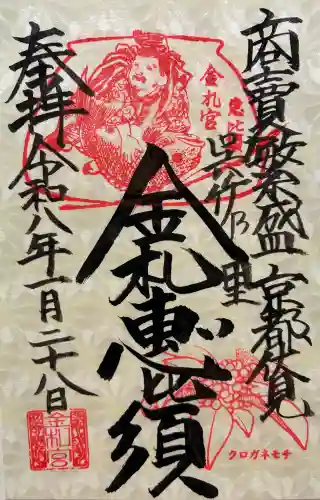 商賣繁栄盛 京都伏見
呉竹乃里
金札宮
恵比
金札恵比須
奉拝 令和八年一月二十八日
金札宮
クロガネモチ